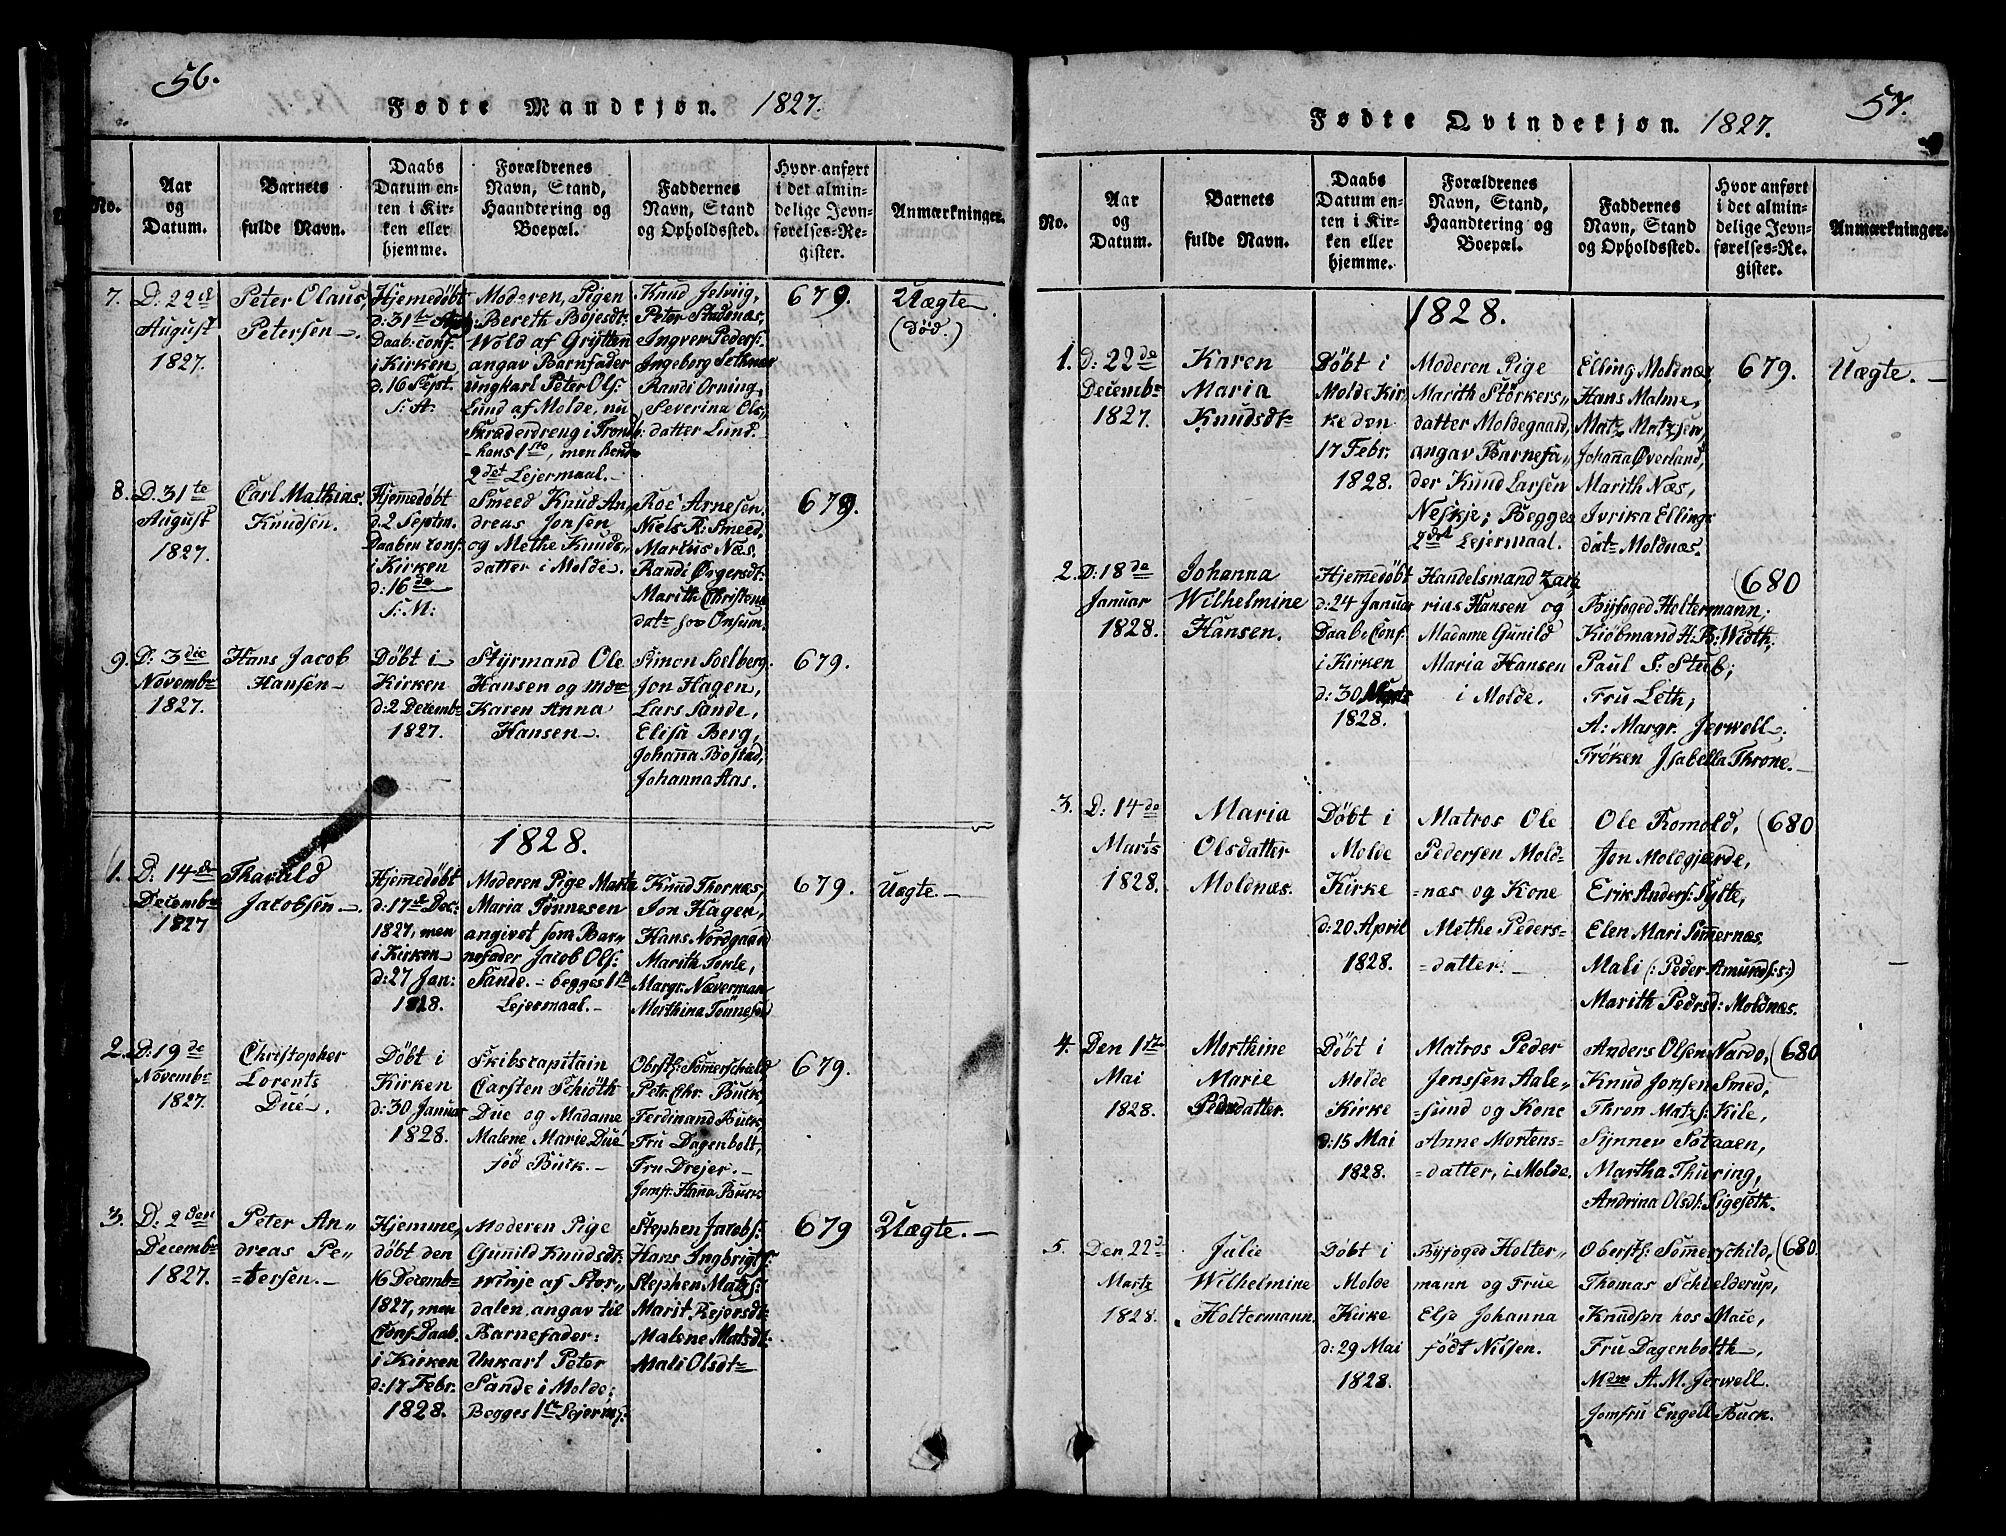 56.
Fødte Mandkjøn. 1827.
No.
Aar
og
Datum.
Barnets
fulde Navn.
Daabs
Datum en-
ten i Kir-
ken eller
hjemme.
Forældrenes
Navn, Stand,
Haandtering og
Boepæl.
Faddernes
Navn, Stand
og Opholdssted.
Hvor anført
i det almin-
delige Jevn-
førelses-Re-
gister.
Anmærkninger.
7.
D: 22d
August
1827.
Peter Olaus
Petersen
Hjemedøbt
d: 31te
Daab: conf.
i Kirken
d. 16 Sept.
S: A:
Moderen, Pigen
Bereth Böjesdt:
Wold af Grÿtten
angav Barnfader
ungkarl Peter Ols:
Lund af Molde, nu
Skræderdreng i Trondh:
2det Lejermaal.
Knud Jelvig,
Peter
Ingver Peders:
Ingeborg
Randi Orning,
Severina Ols,,
datter Lund.
679.
Uægte
(død.)
8.
D: 31te
August
1827.
Carl Mathias
Knudsen.
Hjemedøbt
d. 2 Septm.
Daaben conf.
i Kirken
d: 16de
S: M:
Smeed Knud An,,
dreas Jonsen
og Methe Knuds,,
datter i Molde.
Roe Arnesen
Niels R: Smeed,
Marcus Næs.
Randi
Marith Christens
datr
679.
9.
D: 3die
Novembr
1827.
Hans Jacob
Hansen
Døbt i
Kirken
d: 2 Decembr
1827.
Styrmand Ole
Hansen og
Karen Anna
Hansen.
Simon Soelberg.
Jon Hagen,
Lars Sande,
Elisa Berg,
Johanna Bostad,
Johanna Aas.
679.
1828.
1.
D: 14de
Decembr
1827
Jacobsen
Hjemedøbt
d: 17de Dec:
1827, men
i Kirken
d: 27 Jan:
1828.
Moderen Pige Marta
Maria Tönnesen
angivet som Bar,,
nefader Jacob Ols:
Sande. - begges 1te
Lejermaal.
Knud Thornæs,
Jon Hagen,
Hans Nordgaard
Marith
Margr. Næverman
Morthina Tönnesen
679.
Uægte
2.
D: 19de
Novembr
1827.
Christopher
Lorents
Due.
Døbt i
Kirken
d: 30 Januar
1828.
Skibscapitain
Carsten Schiöth
Due og Madame
Malene Marie Due
föd Buck.
Obrstl: Sommerschield
Petr. Chr. Buck,
Ferdinand Buck,
Fru Dagenbolt,
Fru Drejer.
Jomfr. Hanna Buck
679.
3.
D: 2den
Decembr
1827.
Peter An,,
dreas Pe,,
=tersen.
Hjemme,,
døbt den
16 Decembr
1827, men
Conf. Daab.
i Kirken
d: 17 Febr.
1828.
Moderen Pige
Gunild Knudsdt:
Vinje af Stor,,
dalen, angav til
Barnefader:
Unkarl Peter
Sande i Molde;
Begges 1te Lejerm.
Stephen Jacobs:
Hans Ingbrigts:
Stephen Matzs:
Marit Rejersdt:
Malene Matsdt:
Mali Olsdtr
679
Uægte.
57.
Fødte Qvindekjøn. 1827.
No.
Aar
og
Datum.
Barnets
fulde Navn.
Daabs
Datum en-
ten i Kir-
ken eller
hjemme.
Forældrenes
Navn, Stand,
Haandtering og
Boepæl.
Faddernes
Navn, Stand
og Opholdssted.
Hvor anført
i det almin-
delige Jevn-
førelses-Re-
gister.
Anmærkninger.
1828.
1.
D: 22de
Decembr
1827.
Karen
Maria
Knudsdt
Døbt i
Molde Kir,
ke den
17 Febr.
1828.
Moderen Pige
Marith Störkers,,
datter Moldegaard,
angav Barnefa,,
der Knud Larsen
Neskje; Begges
2det Lejermaal.
Elling Moldnæs,
Hans Malme,
Matz Matzsen,
Johanna Øverland,
Marith Næs,
Ivrika Ellings
datr Moldnæs.
679.
Uægte.
2.
D: 18de
Januar
1828.
Johanna
Wilhelmine
Hansen.
Hjemmedøbt
d: 24 Januar
Daab: Conf.
i Kirken
d: 30
1828.
Handelsmand Zach
rius Hansen og
Madame Gunild
Maria Hansen
i Molde.
Byfoged Holtermann;
Kiöbmand H. B: Width;
Paul S: Stub;
Fru Leth;
A: Margr. Jerwell;
Fröken Isabella Throne.
(680
3.
D: 14de
Marts
1828.
Maria
Olsdatter
Moldnæs.
Døbt i
Molde
Kirke
d: 20 April
1828.
Matros Ole
Pedersen Mold-
=næs og Kone
Methe Peders-
=datter.
Ole Romold,
Jon Moldgjerde,
Erik Anders: Sylte,
Elen Mari Sömernæs.
Mali (: Peder Amunds:s:)
Marith Pedersd: Moldnæs.
(680
4.
Den 1ste
Mai
1828.
Morthine
Marie
Pedersdatter.
Døbt i
Molde
Kirke
d: 15 Mai
1828.
Matros Peder
Jenssen Aale=
=sund og Kone
Anne Mortens=
=datter, i Molde.
Anders Olsen Vardo,
Knud Jonsen Smed,
Thron Matzs: Kile,
Synnev Sotaaen,
Martha Thuring,
Andrina Olsdt: Ligeseth.
(680
5.
Den 22d
Martz
1828.
Julie
Wilhelmine
Holtermann.
Døbt i
Molde
Kirke
d: 29 Mai
1828.
Byfoged Holter=
mann og Frue
Else Johanna
födt Nilsen.
Oberstl: Sommerschild,
Thomas Schielderup,
Knudsen hos Mace,
Fru Dagenbolth,
Mdm A. M. Jerwell.
Jomfru Engell Buck.
(680.